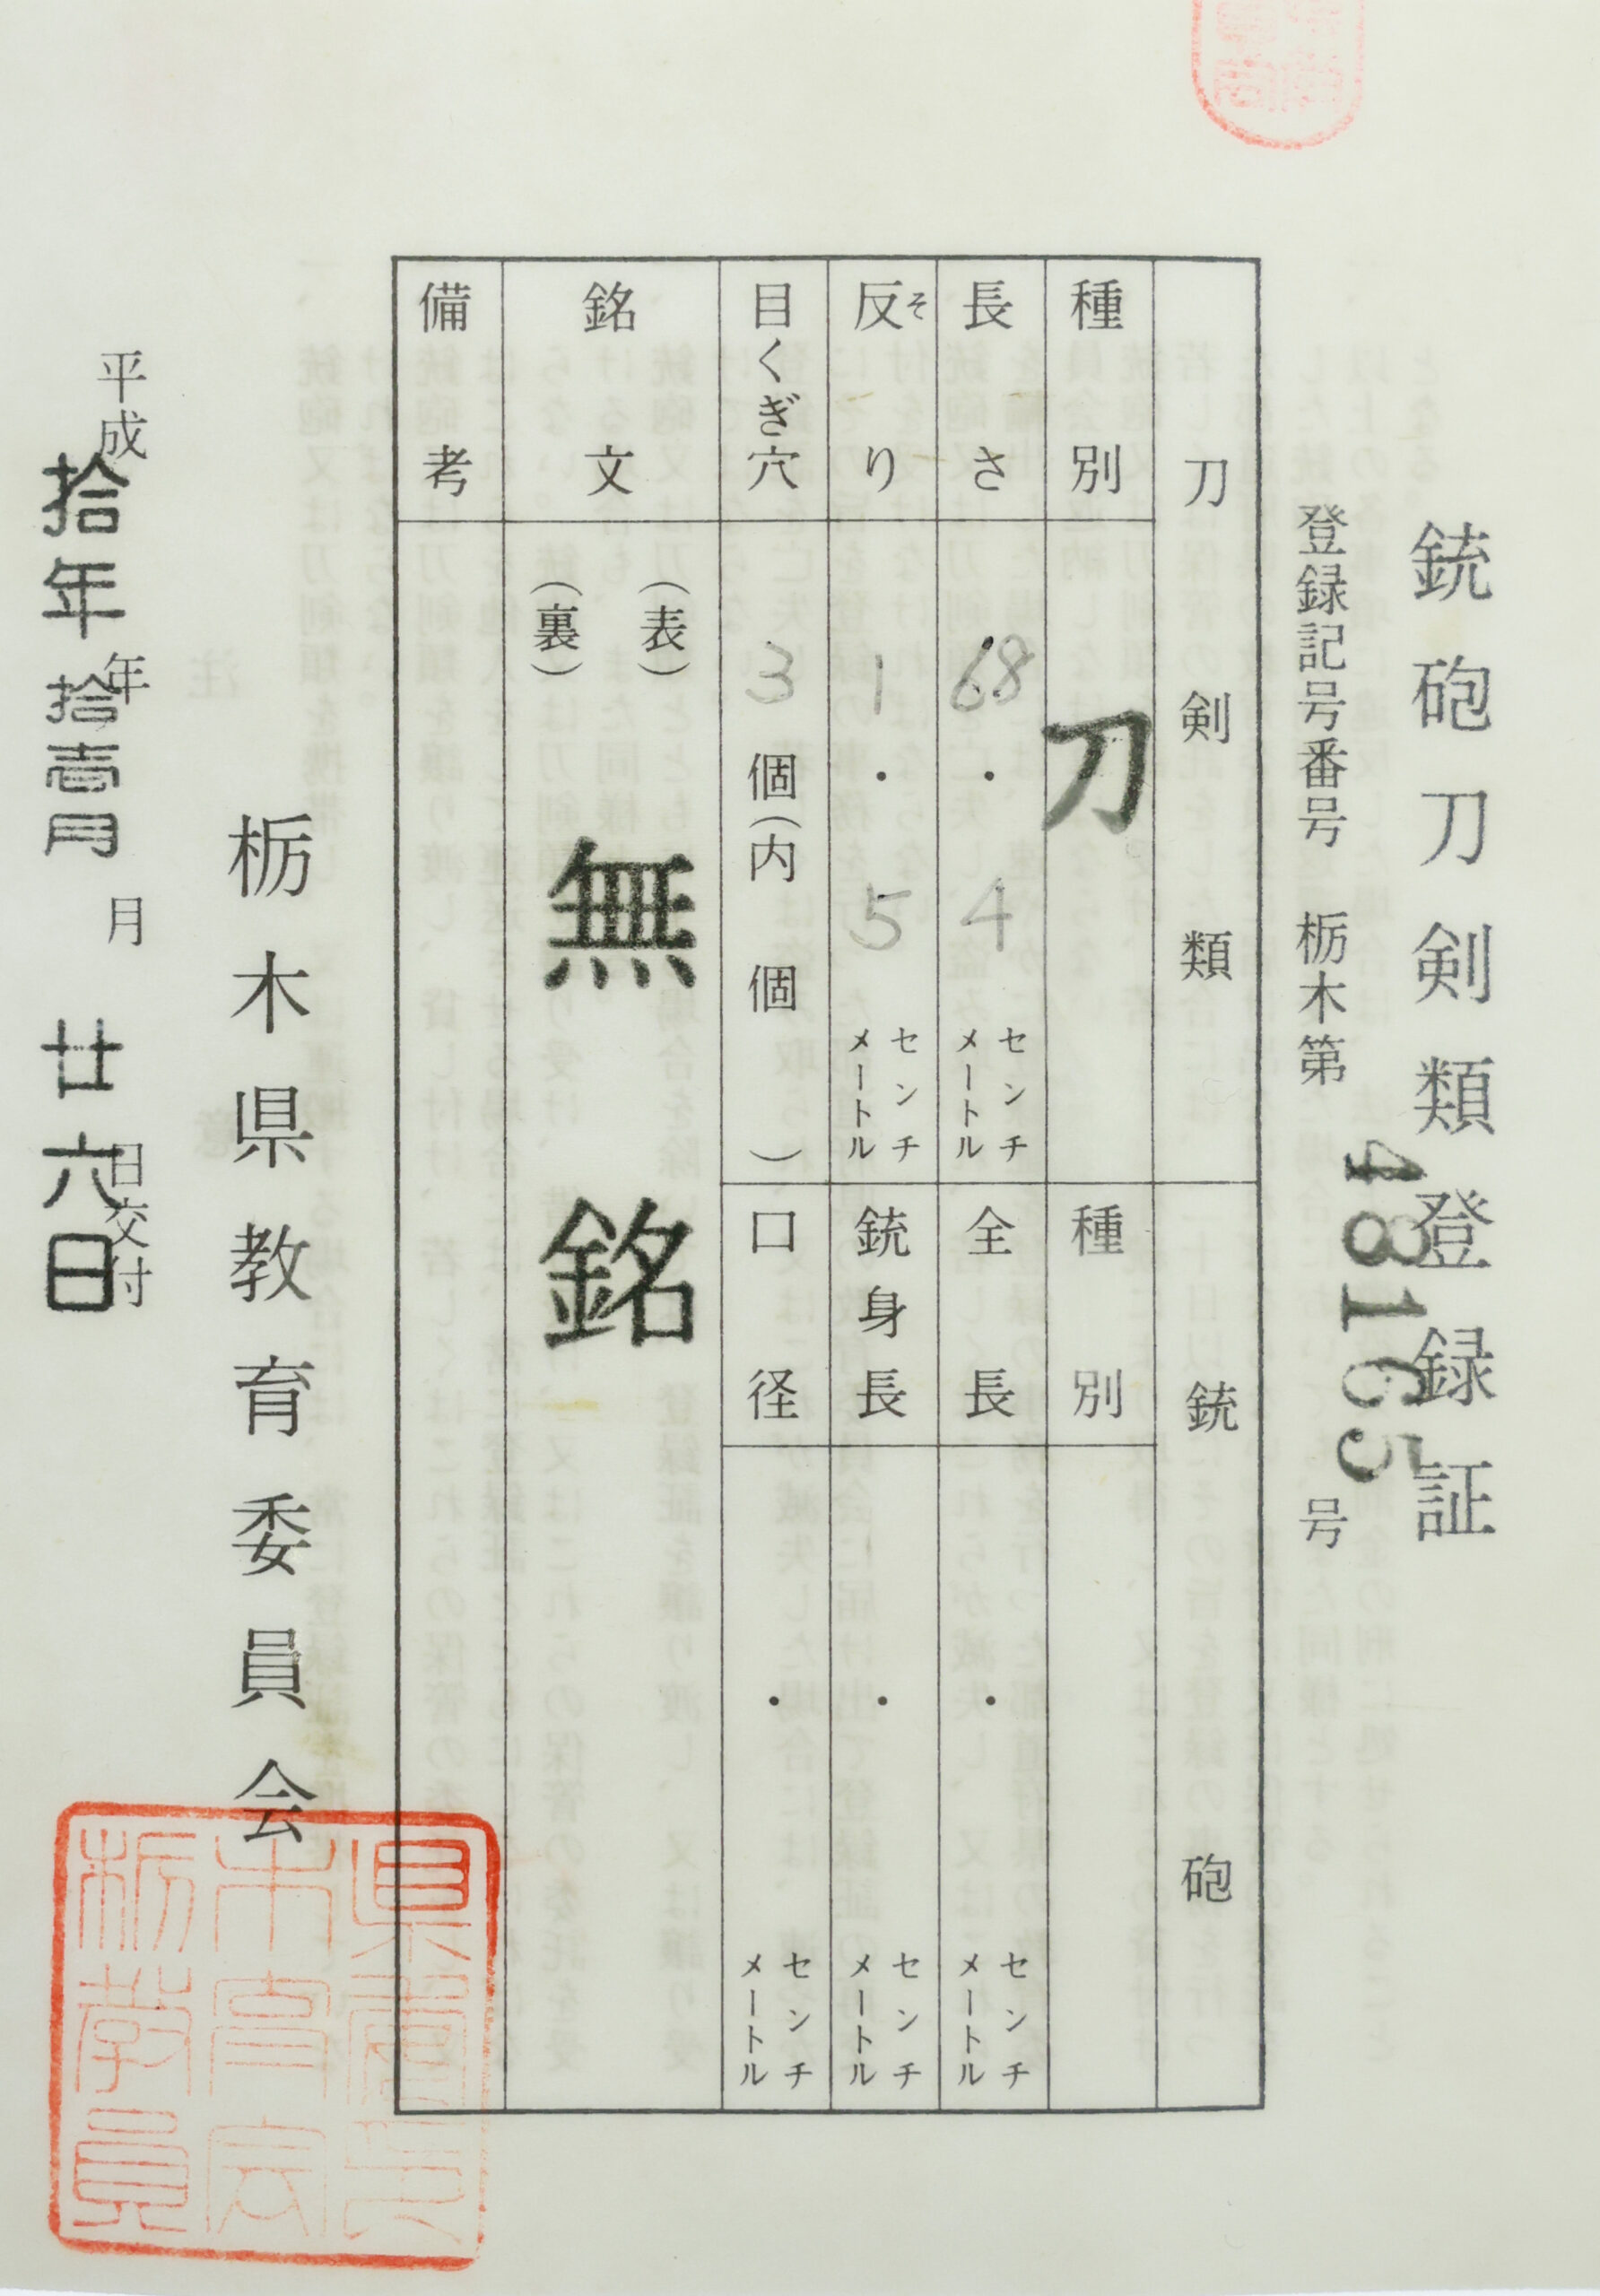 銃砲刀剣類登録証
登録記号番号 栃木第48165号
刀剣類
銃砲
種別 刀
長さ 68.4 センチメートル
反り 1.5 センチメートル
そ
目くぎ穴 3個(内 個)
種別
全長 . センチメートル
銃身長 . センチメートル
口径 . センチメートル
銘文 (表) (裏) 無銘
備考
栃木県教育委員会
平成 年 月 日交付
拾年拾壱月廿六日
栃木県教育委員会